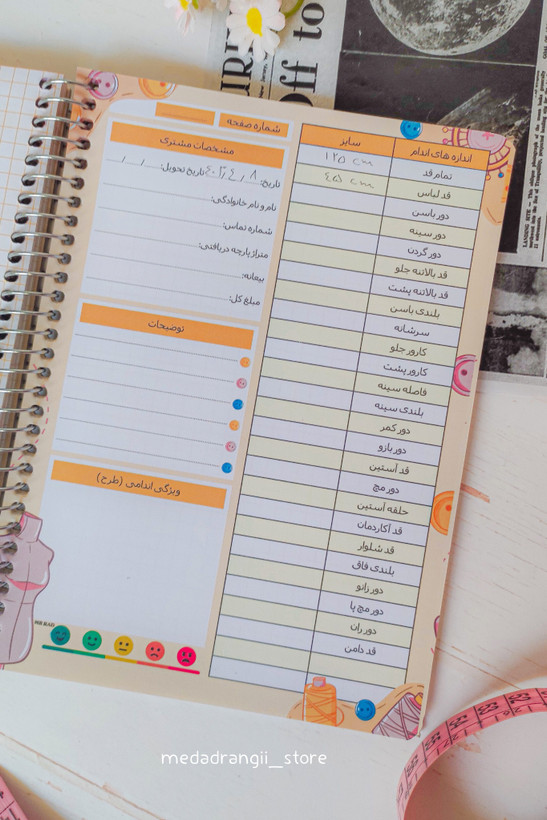 اندازه های اندام
سایز
تمام قد
۱۲۵ cm
قد لباس
۴۵ cm
دور باسن
دور سینه
دور گردن
قد بالاتنه جلو
قد بالاتنه پشت
بلندی باسن
سرشانه
کارور جلو
کارور پشت
فاصله سینه
بلندی سینه
دور کمر
دور بازو
قد آستین
دور مچ
حلقه آستین
قد آکاردمان
قد شلوار
بلندی فاق
دور زانو
دور مچ پا
دور ران
قد دامن
شماره صفحه
مشخصات مشتری
تاریخ: ۴۰۲/۴/۸ تاریخ تحویل: / /
نام و نام خانوادگی:
شماره تماس:
متراژ پارچه دریافتی:
بیعانه:
مبلغ کل:
توضیحات
ویژگی اندامی (طرح)
medadrangii_store